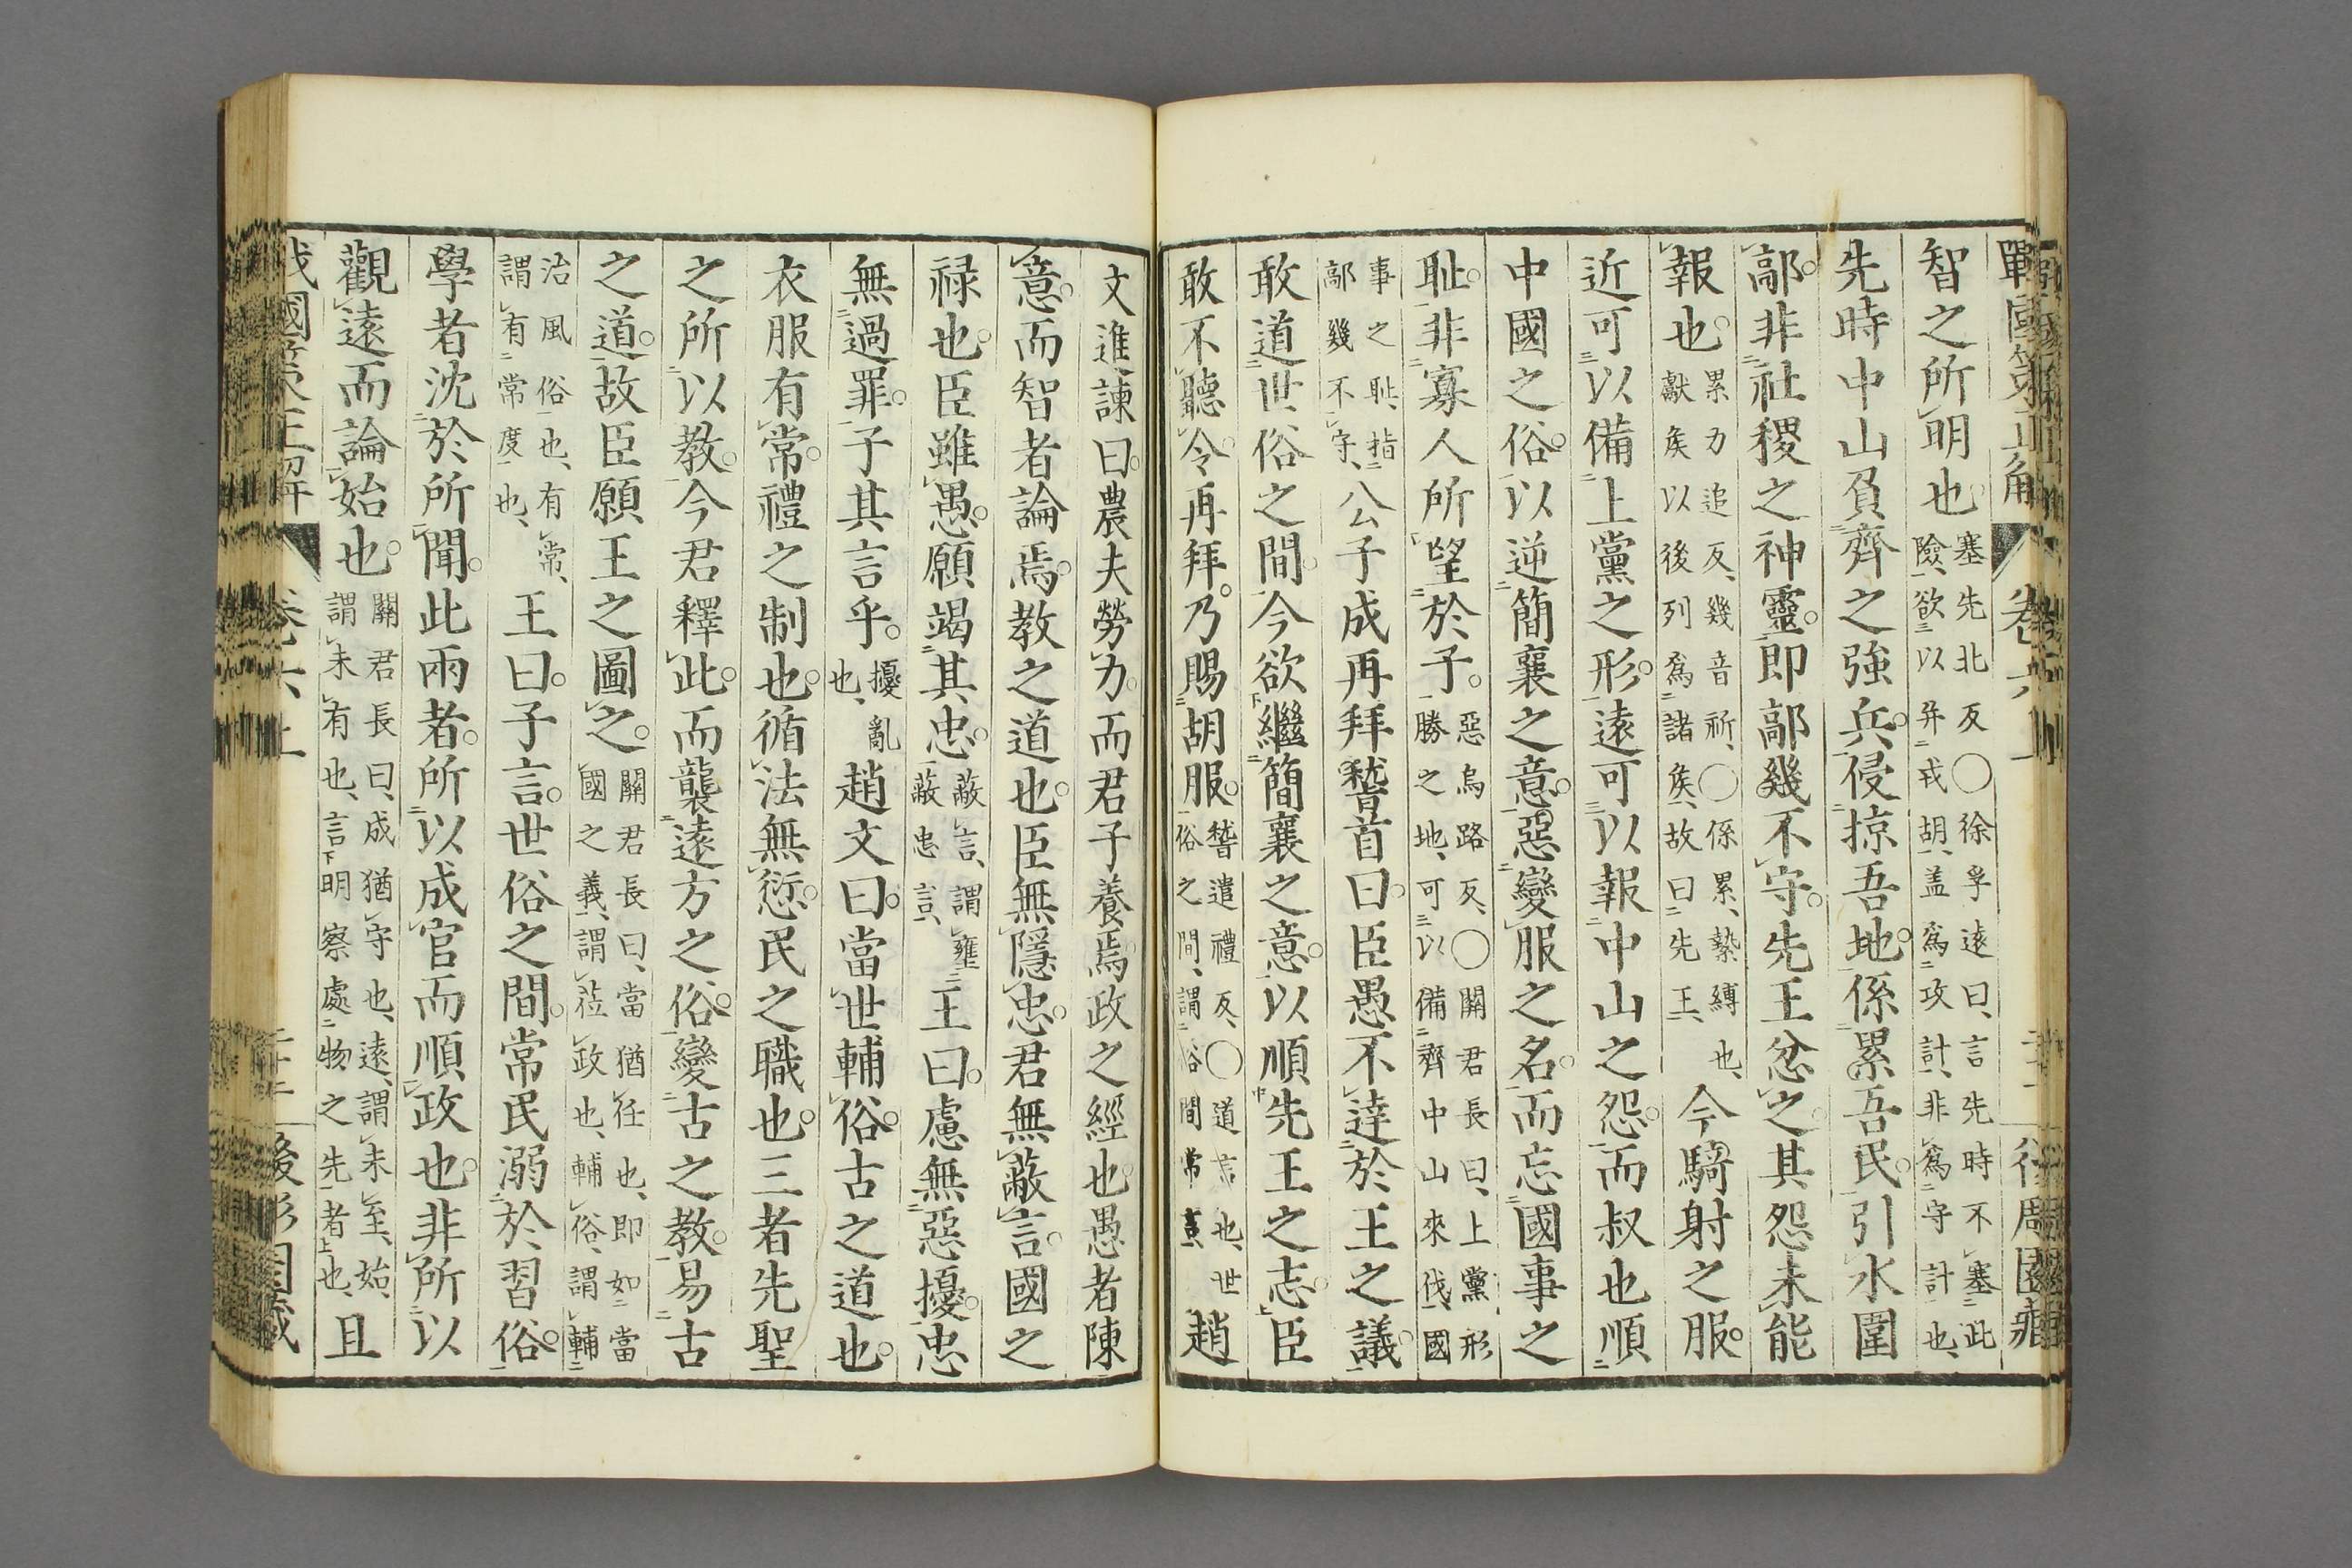 戰國策正解 卷六上 二十一 後凋園藏
智之所明也塞先北反○徐孚遠曰言先時不塞此險欲以弁戎胡盖爲攻計非爲守計也
先時中山負齊之強兵侵掠吾地係累吾民引水圍
鄗非社稷之神靈即鄗幾不守先王忿之其怨未能
報也累力追反幾音祈○係累縶縛也獻矦以後列爲諸矦故曰先王今騎射之服
近可以備上黨之形遠可以報中山之怨而叔也順
中國之俗以逆簡襄之意惡變服之名而忘國事之
耻非寡人所望於子惡烏路反○關君長曰上黨形勝之地可以備齊中山來伐國
事之耻指鄗幾不守公子成再拜稽首曰臣愚不達於王之議
敢道世俗之間今欲繼簡襄之意以順先王之志臣
敢不聽令再拜乃賜胡服稽遣禮反○道言也世俗之間謂俗間常言趙
文進諫曰農夫勞力而君子養焉政之經也愚者陳
意而智者論焉教之道也臣無隱忠君無蔽言國之
禄也臣雖愚願竭其忠蔽言謂壅蔽忠言王曰慮無惡擾忠
無過罪子其言乎擾亂也趙文曰當世輔俗古之道也
衣服有常禮之制也循法無愆民之職也三者先聖
之所以教今君釋此而襲遠方之俗變古之教易古
之道故臣願王之圖之關君長曰當猶任也即如當國之義謂莅政也輔俗謂輔
治風俗也有常謂有常度也王曰子言世俗之間常民溺於習俗
學者沈於所聞此兩者所以成官而順政也非所以
觀遠而論始也關君長曰成猶守也遠謂未至始謂未有也言明察處物之先者也且
戰國策正解 卷六上 二十二 後凋園藏